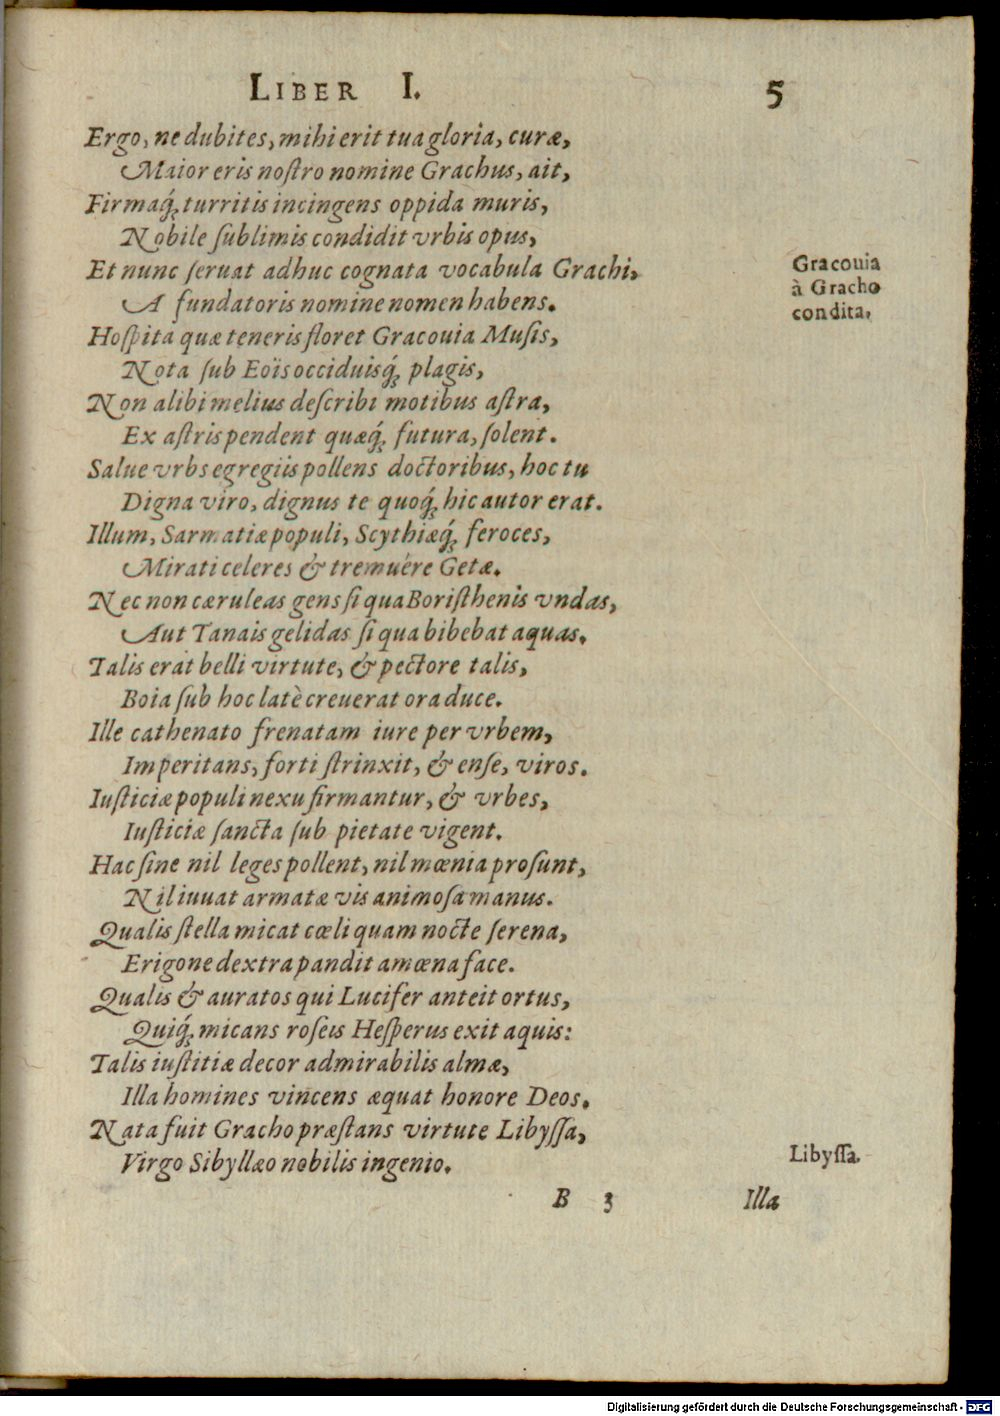 LIBER I. 5
Ergo, ne dubites, mihi erit tua gloria, curæ,
Maior eris noſtro nomine Grachus, ait,
Firmaq́; turritis incingens oppida muris,
Nobile ſublimis condidit vrbis opus,
Et nunc ſeruat adhuc cognata vocabula Grachi,
A fundatoris nomine nomen habens.
Gracouia
à Gracho
condita.
Hoſpita quæ teneris floret Gracouia Muſis,
Nota ſub Eoïs occiduisq́; plagis,
Non alibi melius deſcribi motibus aſtra,
Ex aſtris pendent quæq́; futura, ſolent.
Salue vrbs egregiis pollens doctoribus, hoc tu
Digna viro, dignus te quoq́; hic autor erat.
Illum, Sarmatiæ populi, Scythiæq́; feroces,
Mirati celeres & tremuére Getæ.
Nec non cæruleas gens ſi qua Boriſthenis vndas,
Aut Tanais gelidas ſi qua bibebat aquas.
Talis erat belli virtute, & pectore talis,
Boia ſub hoc latè creuerat ora duce.
Ille cathenato frenatam iure per vrbem,
Imperitans, forti ſtrinxit, & enſe, viros.
Iuſticiæ populi nexu firmantur, & vrbes,
Iuſticiæ ſancta ſub pietate vigent.
Hac ſine nil leges pollent, nil mœnia proſunt,
Nil iuuat armatæ vis animoſa manus.
Qualis ſtella micat cœli quam nocte ſerena,
Erigone dextra pandit amœna face.
Qualis & auratos qui Lucifer anteit ortus,
Quiq́; micans roſeis Heſperus exit aquis:
Talis iuſtitiæ decor admirabilis almæ,
Illa homines vincens æquat honore Deos.
Nata fuit Gracho præſtans virtute Libyſſa,
Virgo Sibyllæo nobilis ingenio.
Libyſſa.
B 3 Illa
Digitalisierung gefördert durch die Deutsche Forschungsgemeinschaft - DFG